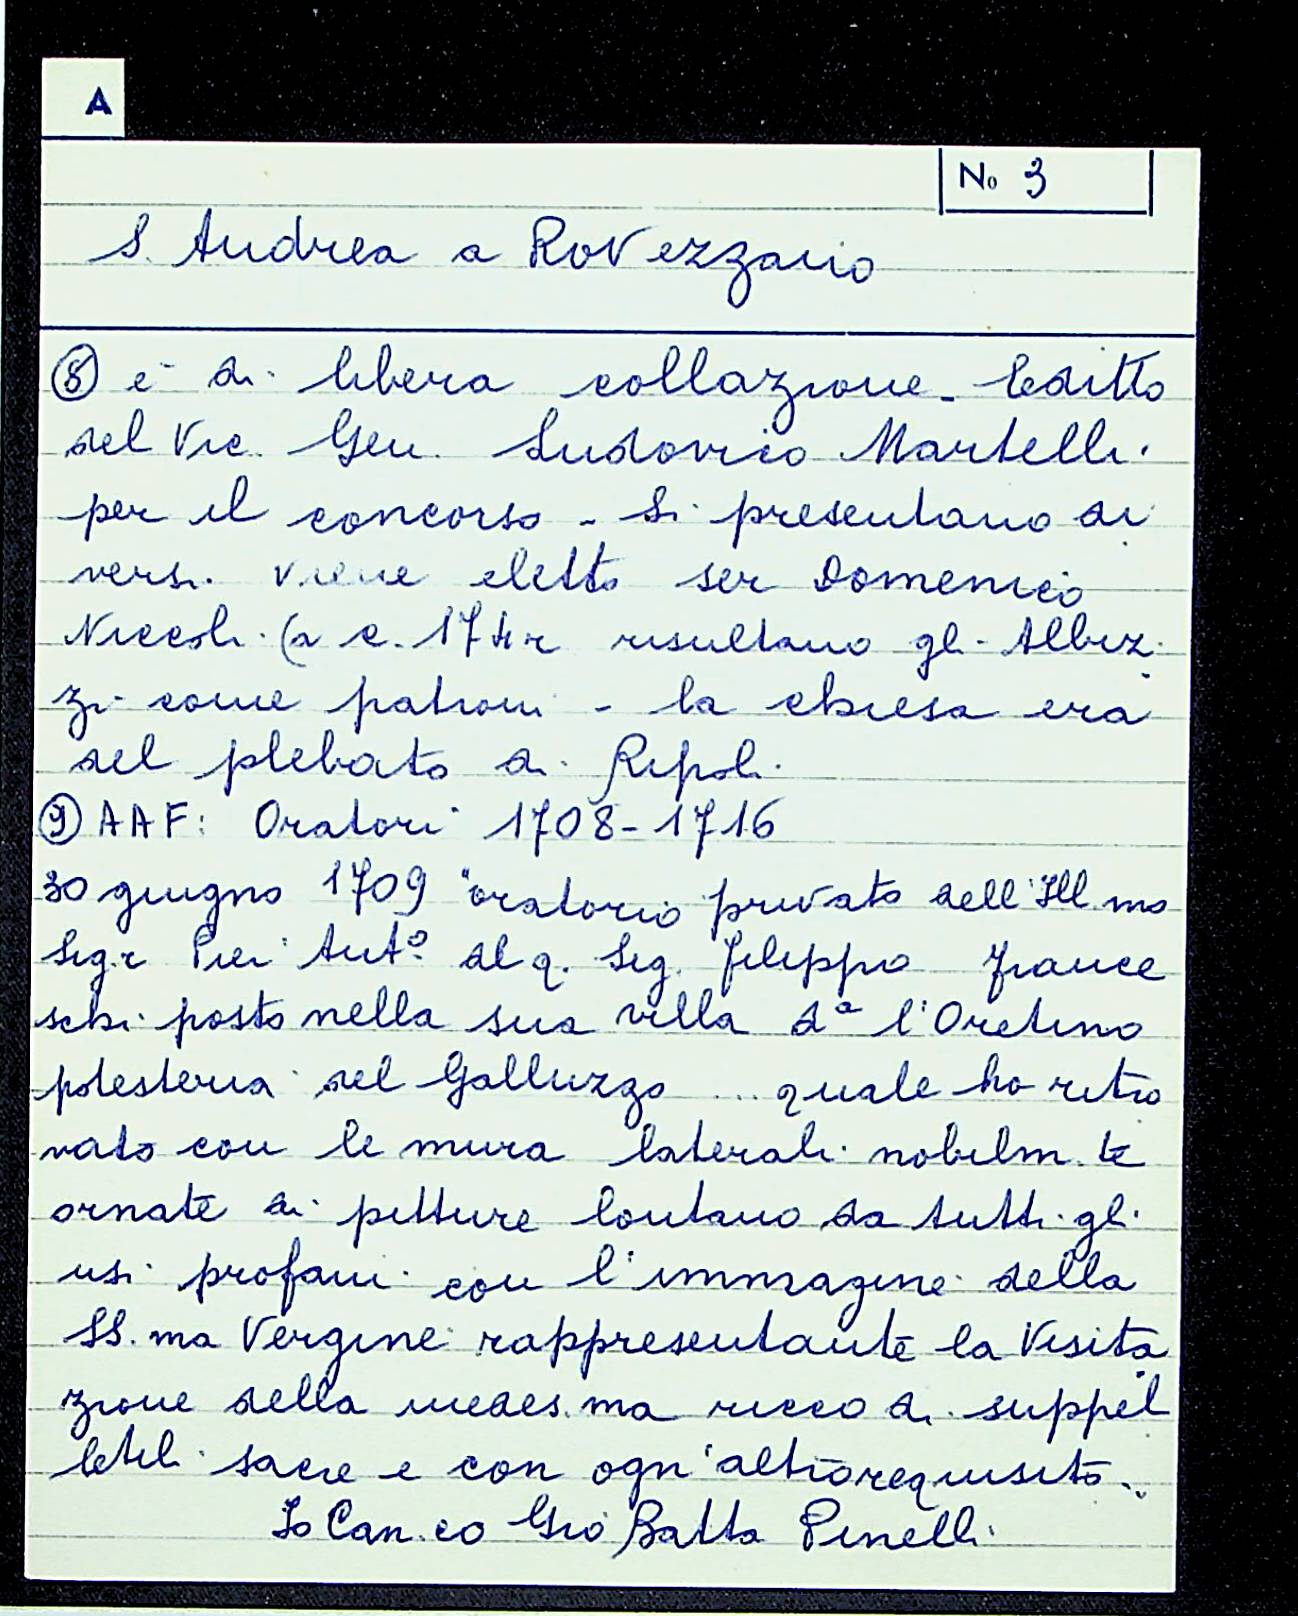 A
No 3
S. Andrea a Rovezzano
⑧ è di libera collazione - Editto
del Vic. Gen. Ludovico Martelli
per il concorso - Si presentano di
versi. Viene eletto ser Domenico
Niccoli (a c. 174r risultano gli Albiz
zi come patroni - la chiesa era
del plebato di Ripoli.
⑨ AAF: Oratori 1708-1716
30 giugno 1709 "oratorio privato dell'Ill.mo
Sig.r Pier Ant.o del q. Sig. Filippo France
schi posto nella sua villa d.a l'Oretino
potesteria del Galluzzo ... quale ho ritro
vato con le mura laterali nobilm.te
ornate di pitture lontano da tutti gli
usi profani con l'immagine della
SS.ma Vergine rappresentante la Visita
zione della medes.ma ricco di suppel
letili sacre e con ogn'altro requisito..
Io Can.co Gio Batta Pinelli